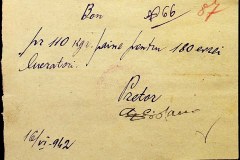 Bon № 66 87
pr 110 Kgr. paine pentru 180 evrei
lucratori.
Pretor
16/VI-942